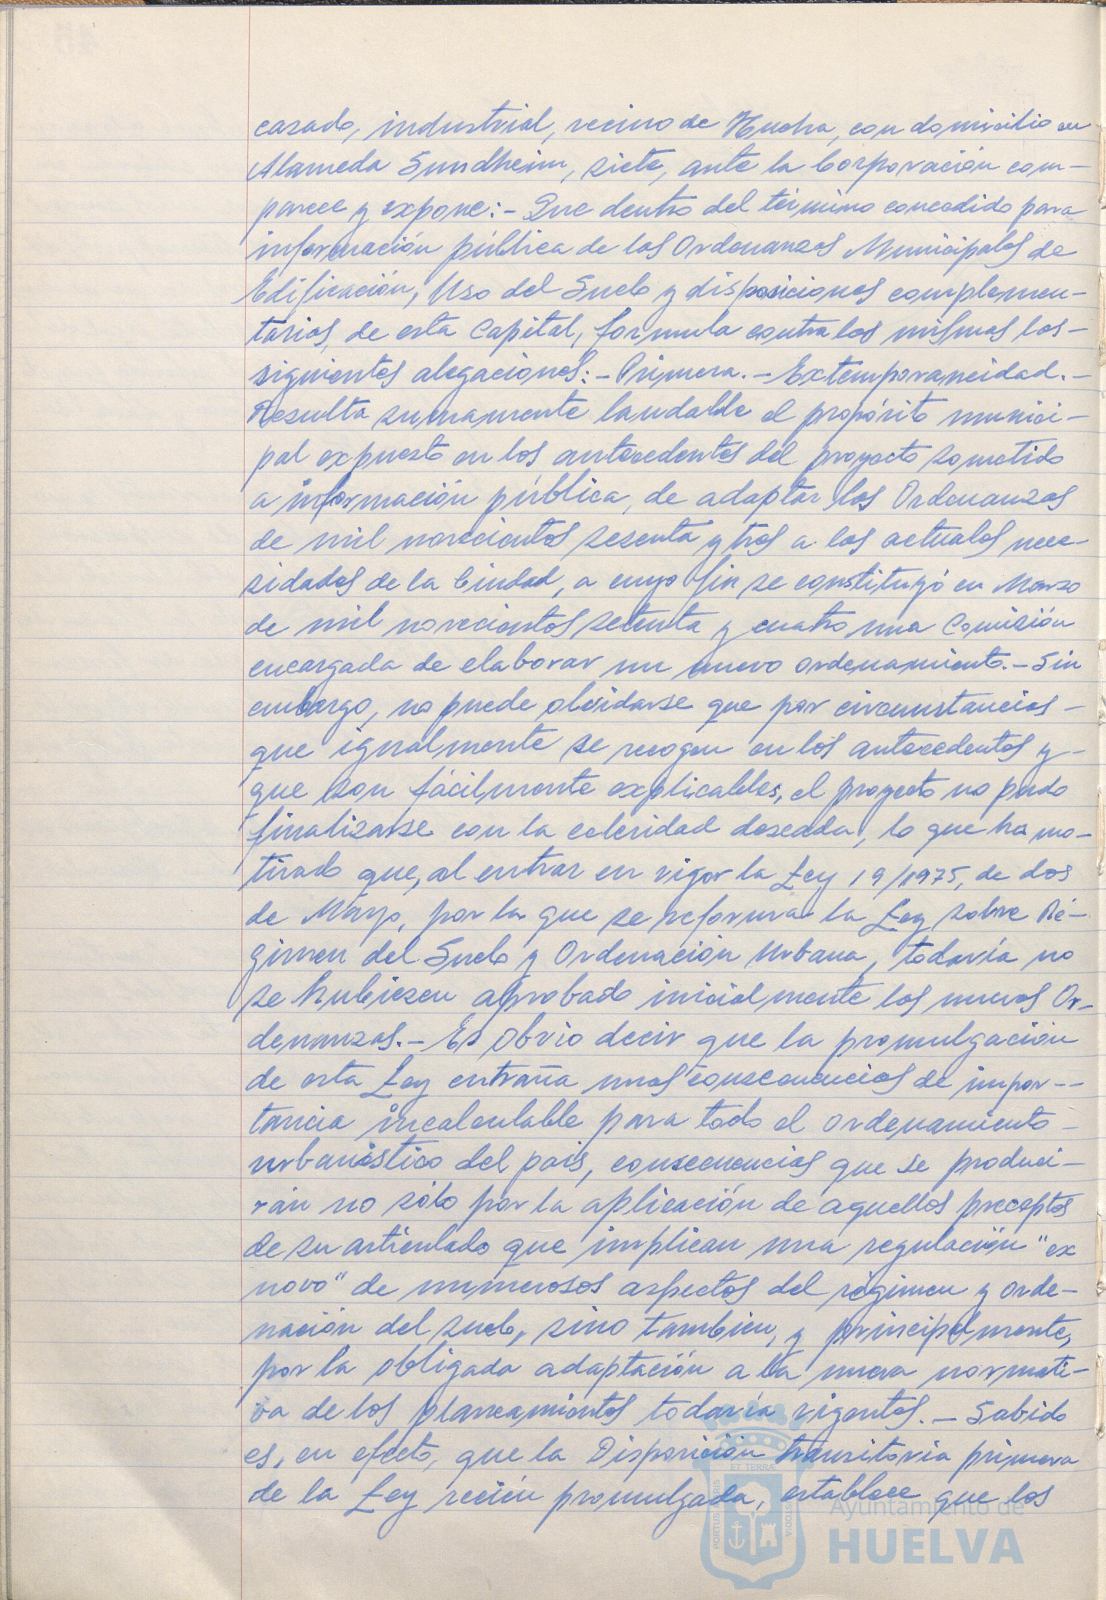 casado, industrial, vecino de Huelva, con domicilio en
Alameda Sundheim, siete, ante la Corporación com-
parece y expone:- Que dentro del término concedido para
información pública de las Ordenanzas Municipales de
Edificación, Uso del Suelo y disposiciones complemen-
tarias, de esta Capital, formula contra las mismas las-
siguientes alegaciones:- Primera.- Extemporaneidad.-
Resulta sumamente laudable el propósito munici-
pal expuesto en los antecedentes del proyecto sometido
a información pública, de adaptar las Ordenanzas
de mil novecientos sesenta y tres a las actuales nece-
sidades de la Ciudad, a cuyo fin se constituyó en Marzo
de mil novecientos setenta y cuatro una Comisión
encargada de elaborar un nuevo ordenamiento.- Sin
embargo, no puede olvidarse que por circunstancias-
que igualmente se recogen en los antecedentes y-
que son fácilmente explicables, el proyecto no pudo
finalizarse con la celeridad deseada, lo que ha mo-
tivado que, al entrar en vigor la Ley 19/1975, de dos
de Mayo, por la que se reforma la Ley sobre Ré-
gimen del Suelo y Ordenación Urbana, todavía no
se hubiesen aprobado inicialmente las nuevas Or-
denanzas.- Es obvio decir que la promulgación
de esta Ley entraña unas consecuencias de impor--
tancia incalculable para todo el ordenamiento-
urbanístico del país, consecuencias que se produci-
rán no sólo por la aplicación de aquellos preceptos
de su articulado que implican una regulación "ex
novo" de numerosos aspectos del régimen y orde-
nación del suelo, sino también, y principalmente,
por la obligada adaptación a la nueva normati-
va de los planeamientos todavía vigentes.- Sabido
es, en efecto, que la Disposición transitoria primera
de la Ley recién promulgada, establece que los
PORTUS MARIS ET TERRAE CUSTODIA
Ayuntamiento de
HUELVA